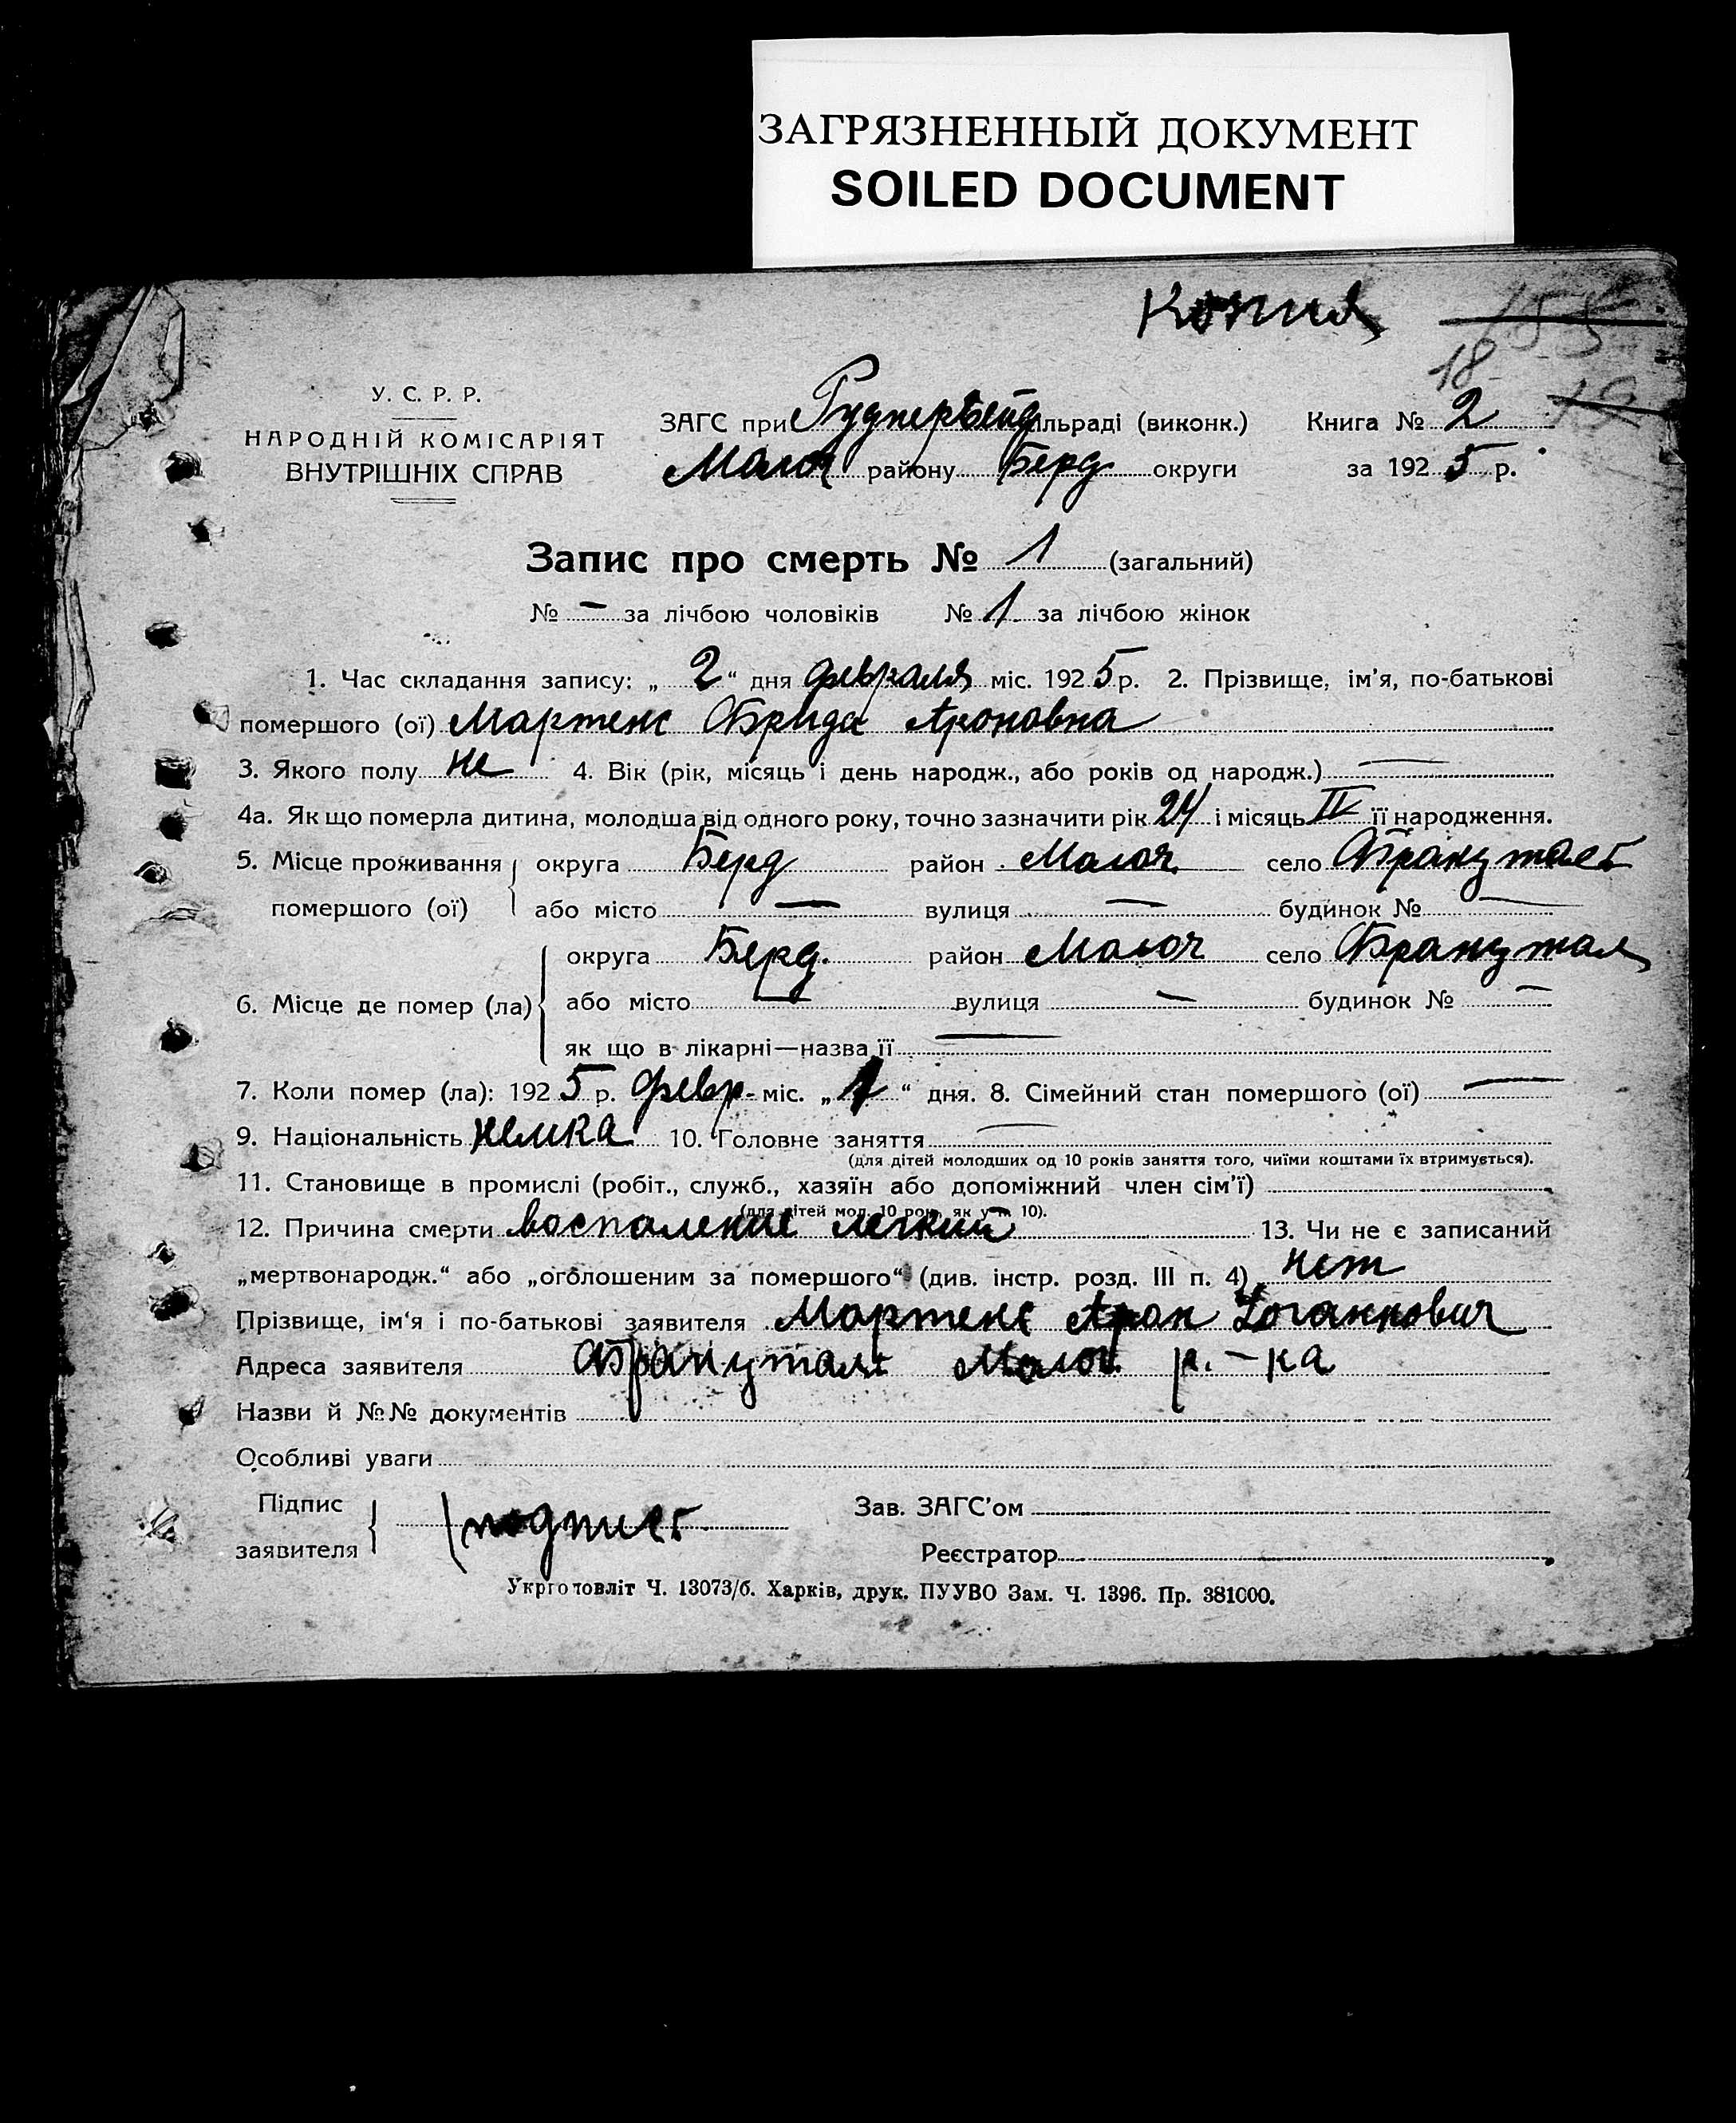 ЗАГРЯЗНЕННЫЙ ДОКУМЕНТ
SOILED DOCUMENT
Копия
18
У. С. Р. Р.
НАРОДНІЙ КОМІСАРІЯТ
ВНУТРІШНІХ СПРАВ
ЗАГС при Руднервейд ільраді (виконк.) Книга № 2
Молоч району Берд округи за 1925 р.
Запис про смерть № 1 (загальний)
№ — за лічбою чоловіків № 1 за лічбою жінок
1. Час складання запису: „ 2 “ дня февраля міс. 1925 р. 2. Прізвище, ім’я, по-батькові
помершого (ої) Мартенс Фрида Ароновна
3. Якого полу 4. Вік (рік, місяць і день народж., або років од народж.) —
4а. Як що померла дитина, молодша від одного року, точно зазначити рік 24 і місяць IV її народження.
5. Місце проживання округа Берд район Молоч село Францталь
помершого (ої) або місто — вулиця — будинок № —
округа Берд. район Молоч село Францталь
6. Місце де помер (ла) або місто — вулиця — будинок № —
як що в лікарні—назва її —
7. Коли помер (ла): 1925 р. февр. міс. „ 1 “ дня. 8. Сімейний стан помершого (ої) —
9. Національність немка 10. Головне заняття —
(для дітей молодших од 10 років заняття того, чиїми коштами їх втримується).
11. Становище в промислі (робіт., служб., хазяїн або допоміжний член сім’ї)
(для дітей мол. 10 рок., як у п. 10).
12. Причина смерти воспаление легкий 13. Чи не є записаний
„мертвонародж.“ або „оголошеним за помершого“ (див. інстр. розд. III п. 4) нет
Прізвище, ім‘я і по-батькові заявителя Мартенс Арон Йоганнович
Адреса заявителя Францталь Молоч. р.-ка
Назви й №№ документів
Особливі уваги
Підпис
заявителя подпись
Зав. ЗАГС’ом
Реєстратор
Укрголовліт Ч. 13073/б. Харків, друк. ПУУВО Зам. Ч. 1396. Пр. 381000.